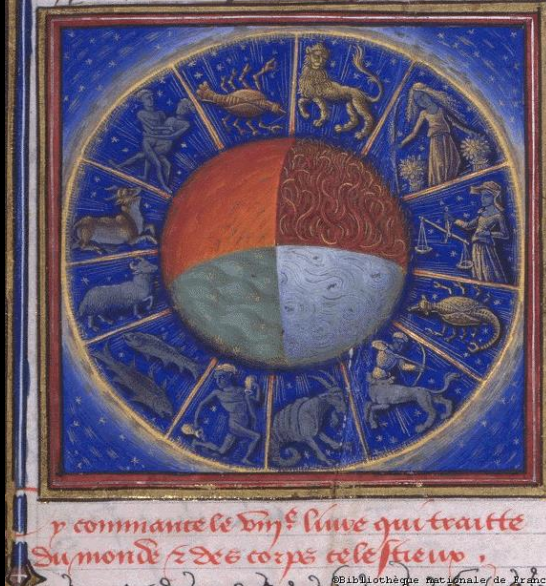 y commance le viije liure qui traitte
du monde & des corps celestieux .
©Bibliothèque nationale de Franc